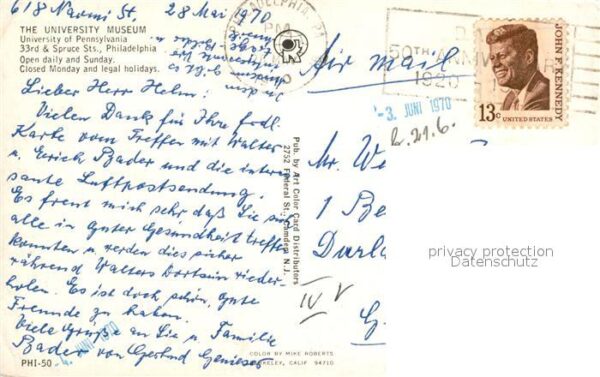 618 Naomi St, 28 Mai 1970
THE UNIVERSITY MUSEUM
University of Pennsylvania
33rd & Spruce Sts., Philadelphia
Open daily and Sunday.
Closed Monday and legal holidays.
Lieber Herr Helm:
Vielen Dank für Ihre frdl.
Karte vom Treffen mit Walter
u. Erich Bader und die interes
sante Luftpostsendung.
Es freut mich sehr daß Sie sich
alle in guter Gesundheit treffen
konnten u. werden dies sicher
während Walters Dortsein wieder-
holen. Es ist doch schön, gute
Freunde zu haben.
Viele Grüße an Sie u. Familie
Bader von Gertrud
PHI-50
COLOR BY MIKE ROBERTS
BERKELEY, CALIF 94710
Pub. by Art Color Card Distributors
2752 Federal St., Camden, N.J.
PM
50TH ANNIV
1920
Air mail
JOHN F. KENNEDY
13c
UNITED STATES
-3. JUNI 1970
21.6.
Mr.
1
IV
JUNI 1970
privacy protection
Datenschutz